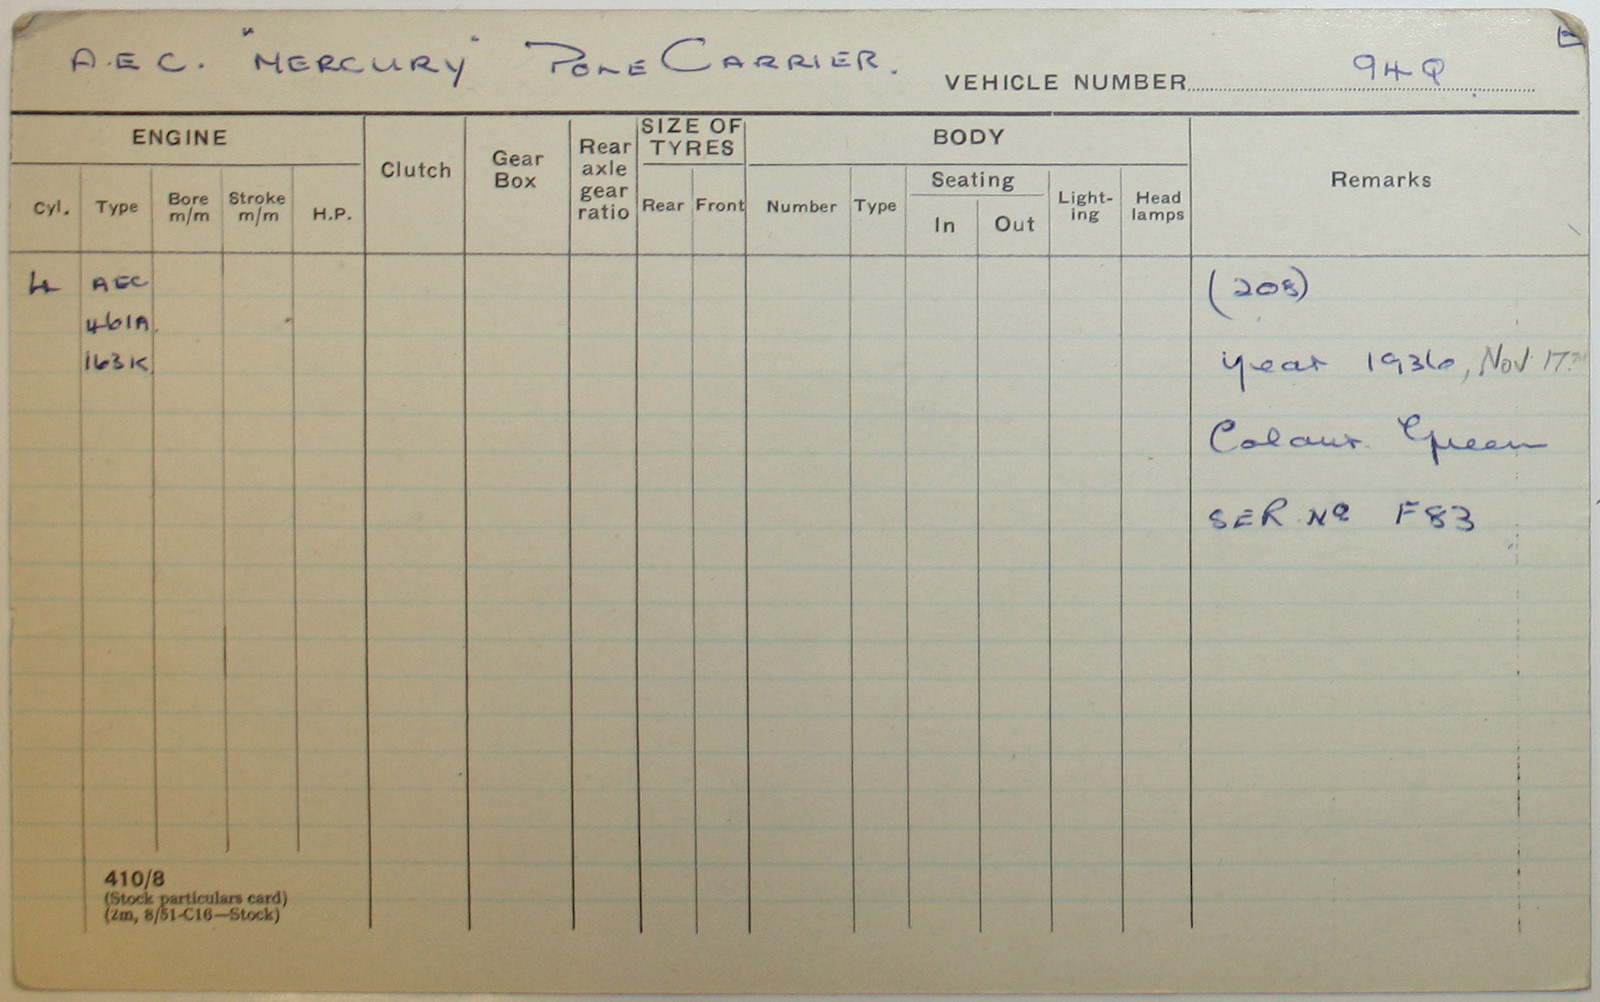 A.E.C. "MERCURY" POLE CARRIER. VEHICLE NUMBER 94Q
ENGINE Clutch Gear Box Rear axle gear ratio SIZE OF TYRES BODY Remarks
Cyl. Type Bore m/m Stroke m/m H.P. Rear Front Number Type Seating In Out Light-ing Head lamps
4 AEC (208)
461A
163K year 1936, Nov 17th
Colour Green
SER No F83
410/8
(Stock particulars card)
(2m, 8/51-C16—Stock)